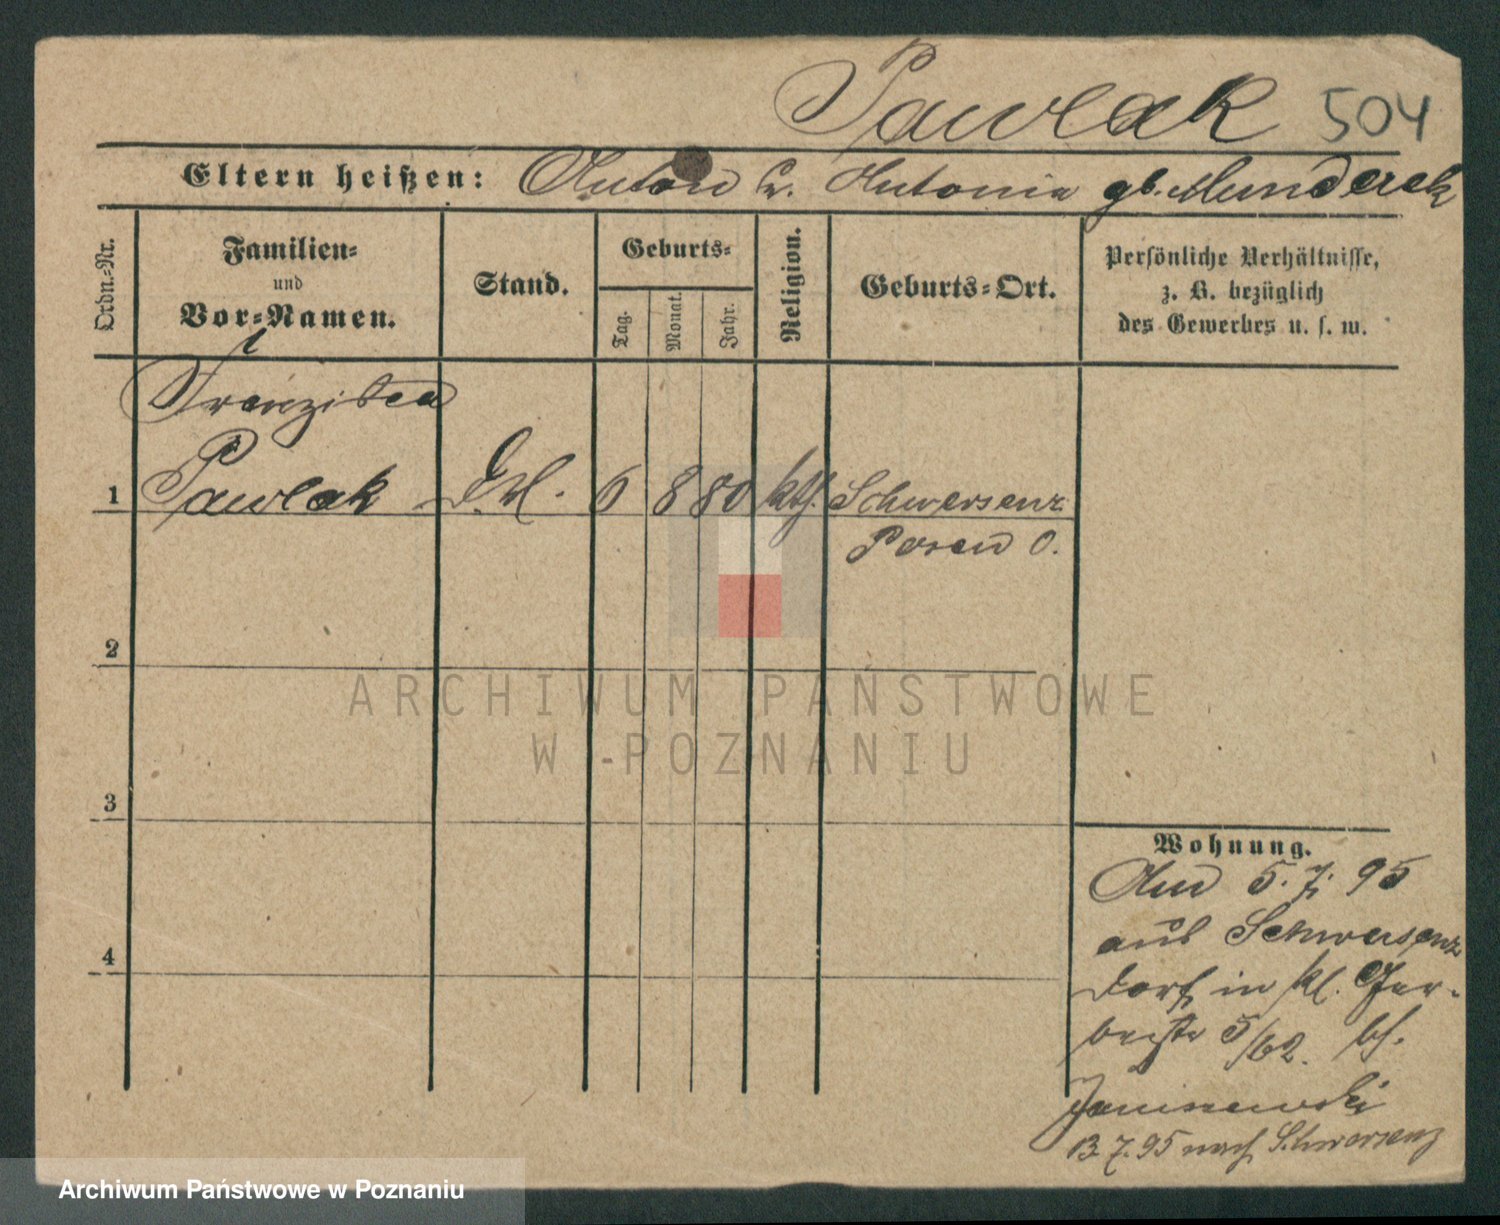 Pawlak 504
Eltern heißen: Anton u. Antonia gb. Munderek
Ordn.-Nr.
Familien-
und
Vor-Namen.
Stand.
Geburts-
Tag.
Monat.
Jahr.
Religion.
Geburts-Ort.
Persönliche Verhältnisse,
z. B. bezüglich
des Gewerbes u. s. w.
Franziska
1 Pawlak 6 8 80 kth. Schwersenz
Posen O.
2
3
4
Wohnung.
5. 7. 95
aus Schwersenz
Dorf in kl. Ger-
5/62. bf.
Janiszewski
13.7.95 nach Schwersenz
ARCHIWUM PAŃSTWOWE
W POZNANIU
Archiwum Państwowe w Poznaniu